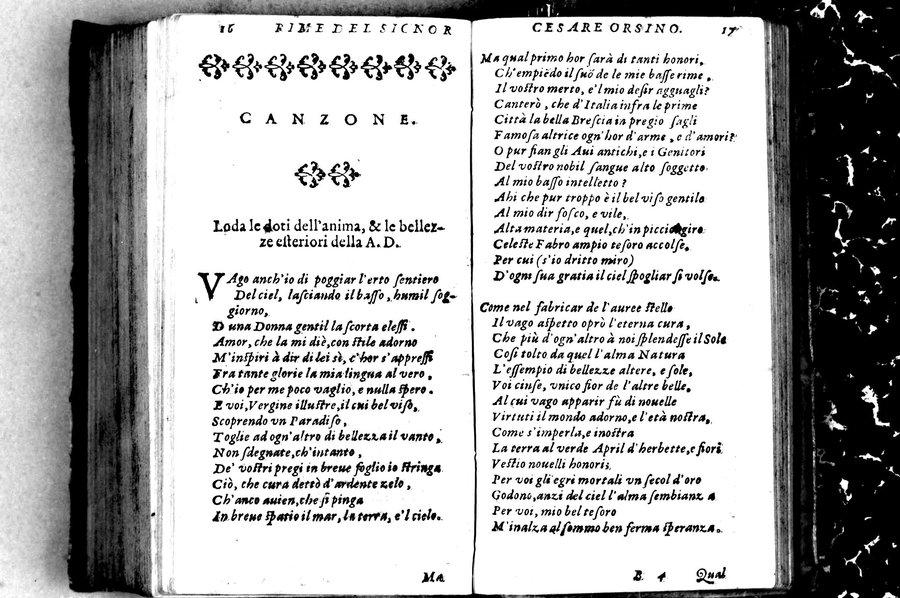 16 RIME DEL SIGNOR
CANZONE.
Loda le doti dell'anima, & le bellez-
ze esteriori della A. D.
VAgo anch'io di poggiar l'erto sentiero
Del ciel, lasciando il basso, humil sog-
giorno,
D una Donna gentil la scorta elessi.
Amor, che la mi diè, con stile adorno
M'inspiri à dir di lei sè, c'hor s'appressi
Fra tante glorie la mia lingua al vero,
Ch'io per me poco vaglio, e nulla spero.
E voi, Vergine illustre, il cui bel viso,
Scoprendo vn Paradiso,
Toglie ad ogn'altro di bellezza il vanto,
Non sdegnate, ch'intanto,
De' vostri pregi in breue foglio io stringa
Ciò, che cura dettò d'ardente zelo,
Ch'anco auien, che si pinga
In breue spatio il mar, la terra, e'l cielo.
Ma
CESARE ORSINO. 17
Ma qual primo hor sarà di tanti honori,
Ch'empiēdo il suō de le mie basse rime,
Il vostro merto, e'l mio desir agguagli?
Canterò, che d'Italia infra le prime
Città la bella Brescia in pregio sagli
Famosa altrice ogn'hor d'arme, e d'amori?
O pur fian gli Aui antichi, e i Genitori
Del vostro nobil sangue alto soggetto
Al mio basso intelletto?
Ahi che pur troppo è il bel viso gentile
Al mio dir fosco, e vile,
Alta materia, e quel, ch'in picciol giro
Celeste Fabro ampio tesoro accolse,
Per cui (s'io dritto miro)
D'ogni sua gratia il ciel spogliar si volse.
Come nel fabricar de l'auree stelle
Il vago aspetto oprò l'eterna cura,
Che più d'ogn'altro à noi splendesse il Sole
Così tolto da quel l'alma Natura
L'essempio di bellezze altere, e sole,
Voi cinse, vnico fior de l'altre belle.
Al cui vago apparir fù di nouelle
Virtuti il mondo adorno, e l'età nostra,
Come s'imperla, e inostra
La terra al verde April d'herbette, e fiori
Vestio nouelli honori,
Per voi gli egri mortali vn secol d'oro
Godono, anzi del ciel l'alma sembianza
Per voi, mio bel tesoro
M'inalza al sommo ben ferma speranza.
B 4 Qual